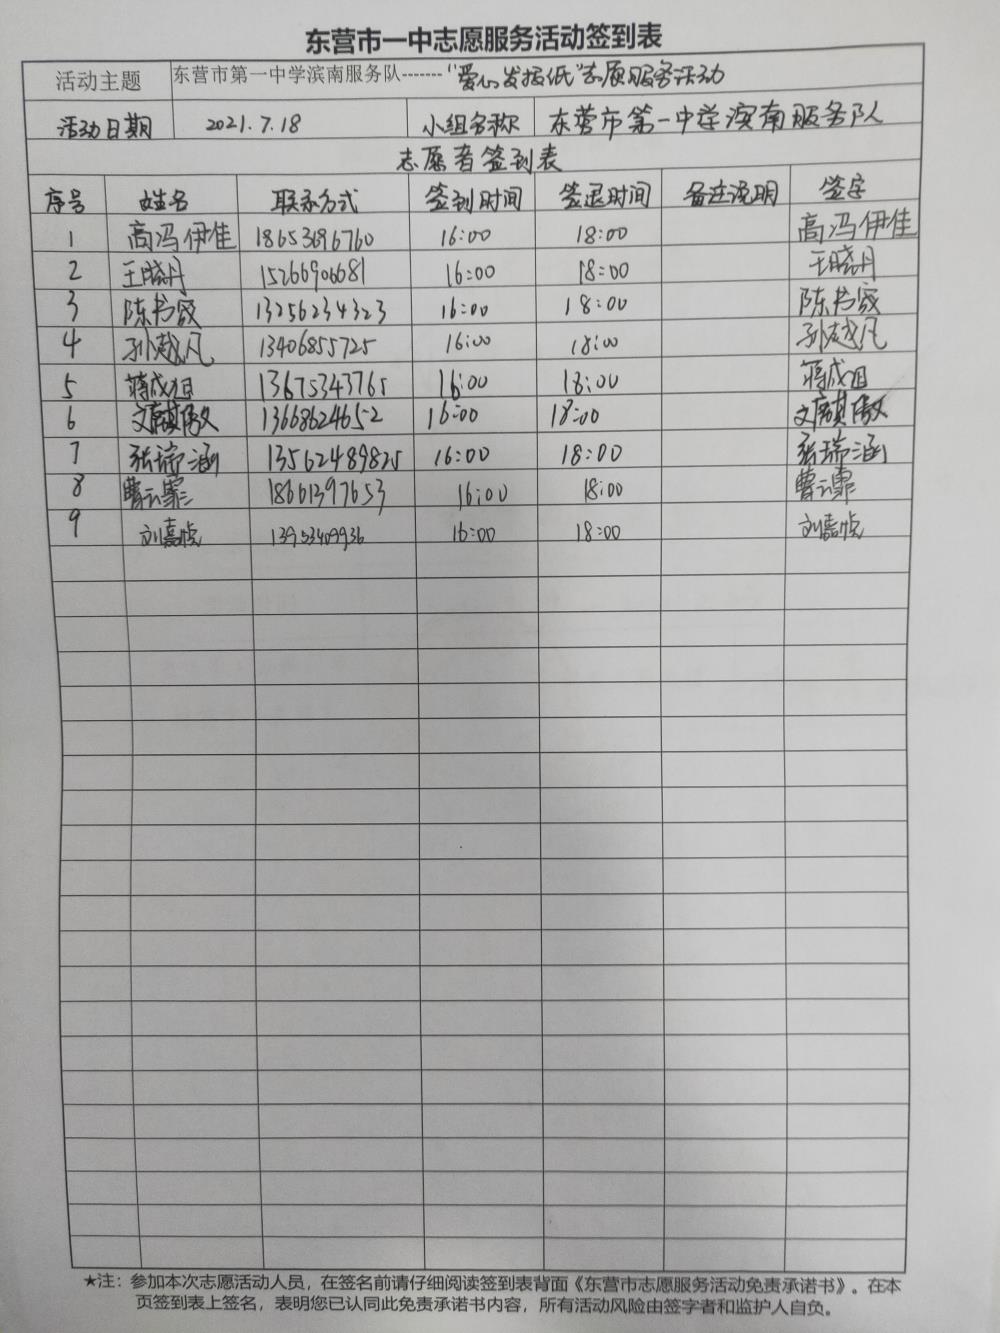 东营市一中志愿服务活动签到表
活动主题 东营市第一中学滨南服务队-------“爱心发报纸”志愿服务活动
活动日期 2021.7.18 小组名称 东营市第一中学滨南服务队
志愿者签到表
序号 姓名 联系方式 签到时间 签退时间 备注说明 签字
1 高冯伊佳 18653696760 16:00 18:00 高冯伊佳
2 王晓丹 15266906681 16:00 18:00 王晓丹
3 陈书 13256234323 16:00 18:00 陈书
4 孙越凡 13406855725 16:00 18:00 孙越凡
5 蒋成旭 13675343765 16:00 18:00 蒋成旭
6 13668624652 16:00 18:00
7 张瑞涵 13562489825 16:00 18:00 张瑞涵
8 曹云霏 18661397653 16:00 18:00 曹云霏
9 刘嘉祯 13953409936 16:00 18:00 刘嘉祯
★注：参加本次志愿活动人员，在签名前请仔细阅读签到表背面《东营市志愿服务活动免责承诺书》。在本
页签到表上签名，表明您已认同此免责承诺书内容，所有活动风险由签字者和监护人自负。